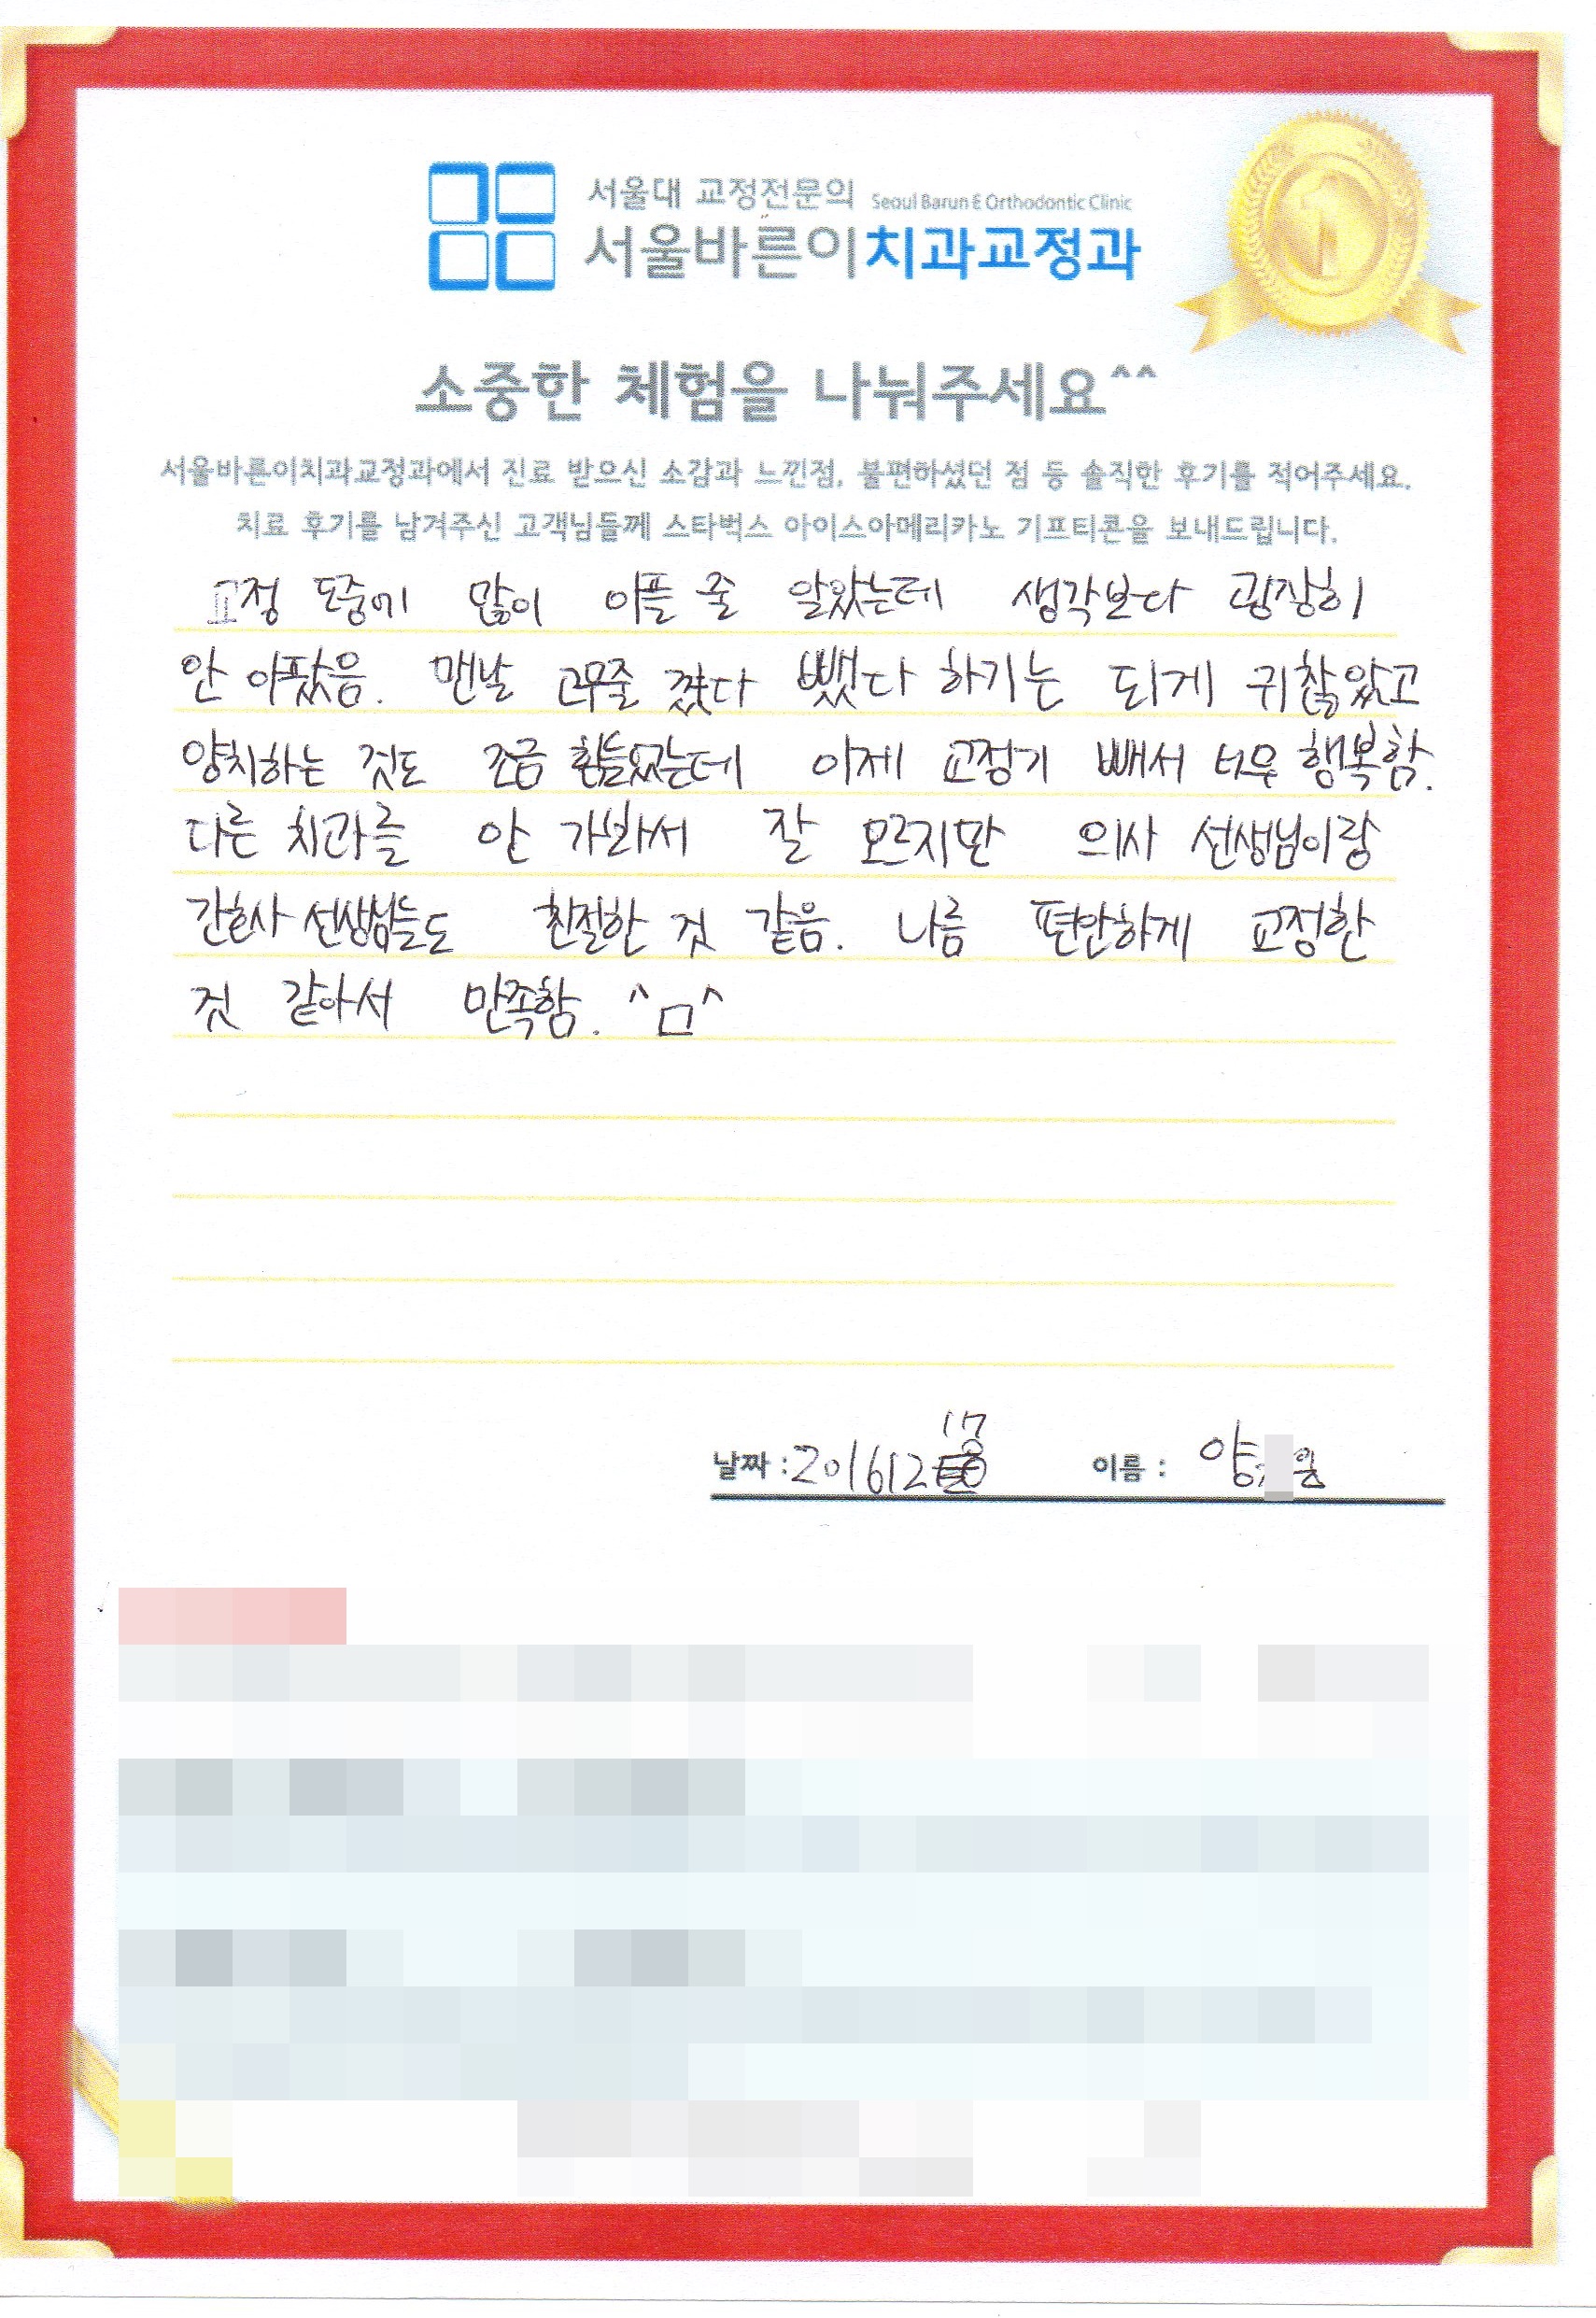 서울대 교정전문의 Seoul Barun E Orthodontic Clinic
서울바른이치과교정과
소중한 체험을 나눠주세요^^
서울바른이치과교정과에서 진료 받으신 소감과 느낀점, 불편하셨던 점 등 솔직한 후기를 적어주세요.
치료 후기를 남겨주신 고객님들께 스타벅스 아이스아메리카노 기프티콘을 보내드립니다.
교정 도중에 많이 아플 줄 알았는데 생각보다 굉장히
안 아팠음. 맨날 고무줄 꼈다 뺐다 하기는 되게 귀찮았고
양치하는 것도 조금 힘들었는데 이제 교정기 빼서 너무 행복함.
다른 치과를 안 가봐서 잘 모르지만 의사 선생님이랑
간호사 선생님들도 친절한 것 같음. 나름 편안하게 교정한
것 같아서 만족함. ^ㅁ^
17
날짜 : 201612 이름 : 양